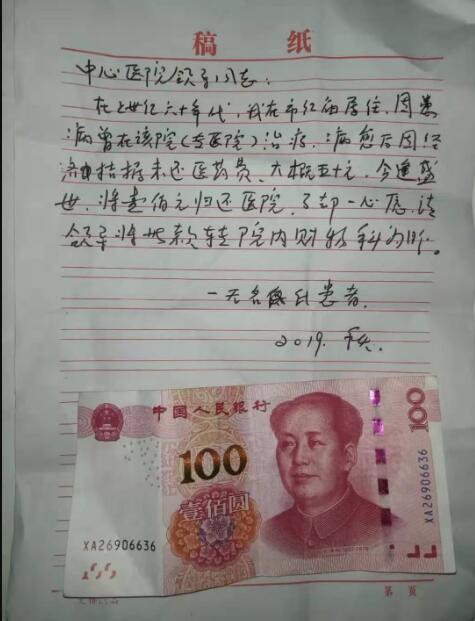 稿 纸
中心医院领导同志：
在上世纪六十年代，我在市红庙居住，因患
病曾在该院（专医院）治疗，病愈后因经
济拮据未还医药费，大概五十元，今逢盛
世，将壹佰元归还医院，了却一心愿，请
领导将此款转院内财务科为盼。
一无名氏患者
2019.秋.
中国人民银行
100
100
壹佰圆
XA26906636
XA26906636
第 页